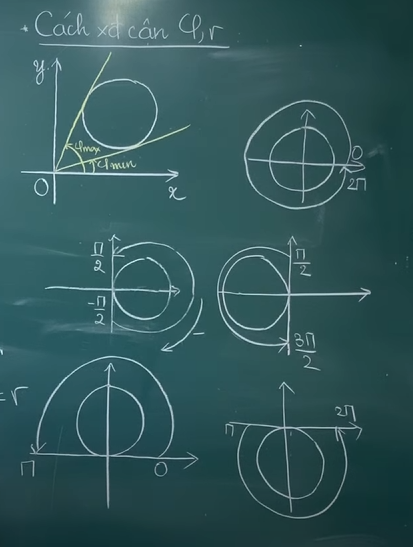 * Cách xđ cận φ, r
y
φmax
φmin
O
x
O
2π
π/2
-π/2
-
π/2
3π/2
=r
π
O
π
2π